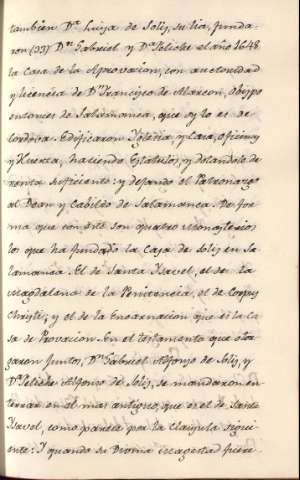 tambien D.ª Luisa de Solis, su tia, funda-
ron (33) D.ⁿ Gabriel y D.ª Feliche el año 1648.
la Casa de la Aprovacion, con auctoridad
y licencia de D.ⁿ Francisco de Alarcon, Obispo
entonces de Salamanca, que oy lo es de
Cordova. Edificaron Iglesia, y Casa, oficinas
y Huerta, haciendo Estatutos, y dotandolo de
renta suficiente: y dejando el Patronazgo
al Dean y Cabildo de Salamanca. De for
ma que con este son quatro Monasterios
los que ha fundado la Casa de Solis en Sa
lamanca. El de Santa Ysavel, el de la
Magdalena de la Penitencia, el de Corpus
Christi; y el de la Encarnacion que es la Ca
sa de Provacion. En el testamento que otor
garon juntos, D.ⁿ Gabriel Alfonso de Solis, y
D.ª Feliche Alfonso de Solis, se mandaron en
terrar en el mas antiguo, que es el de Santa
Ysavel, como parece por la clausula sigui
ente: Y quando su Divina Magestad fuere